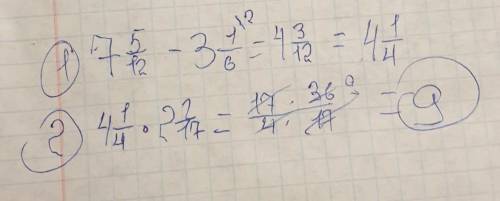 1) 7 5/12 - 3 1/6^2 = 4 3/12 = 4 1/4
2) 4 1/4 · 2 2/17 = 17 · 36^9 / 4 · 17 = 9